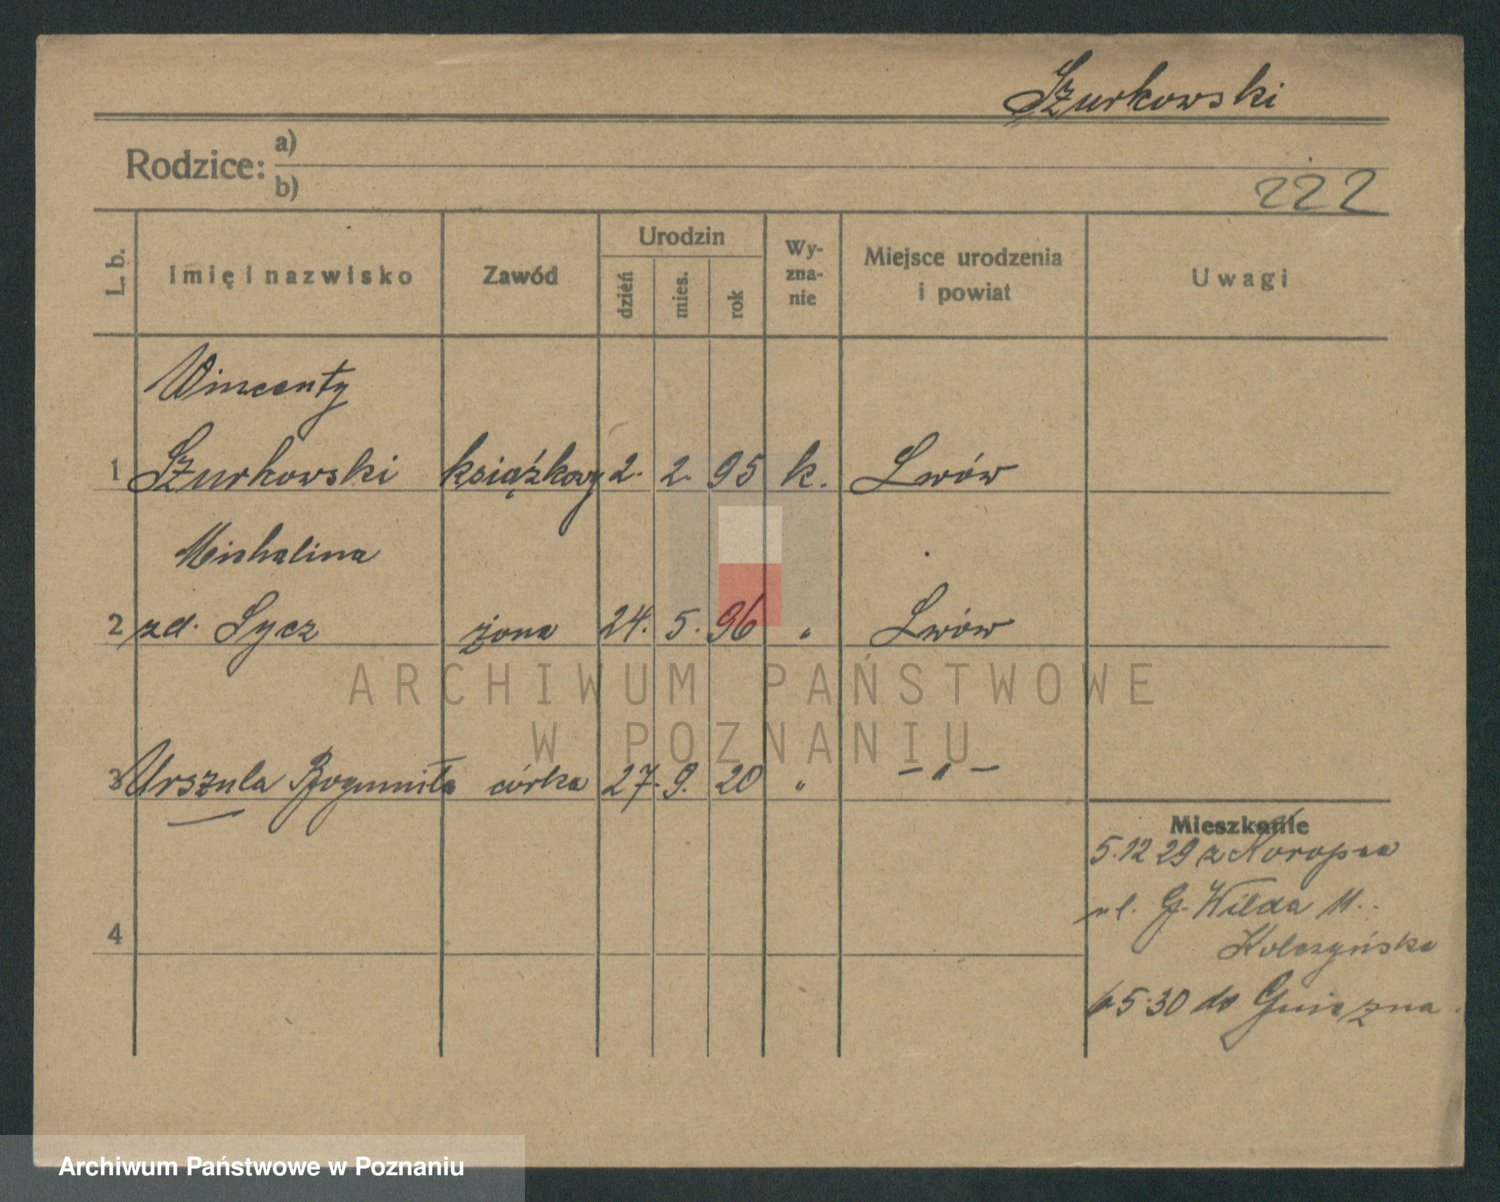 Szurkowski
Rodzice: a)
b)
222
L. b.
Imię i nazwisko
Zawód
Urodzin
dzień
mies.
rok
Wy-
zna-
nie
Miejsce urodzenia
i powiat
Uwagi
Wincenty
1 Szurkowski książkowy 2. 2. 95 k. Lwów
Michalina
2 zd. Sycz żona 24. 5. 96 " Lwów
3 Urszula Bogumiła córka 27. 9. 20 " — " —
Mieszkanie
5.12 29 z Koropca
ul. G. Wilda 11.
4
Kolczyńska
6 5 30 do Gniezna.
ARCHIWUM PAŃSTWOWE
W POZNANIU
Archiwum Państwowe w Poznaniu